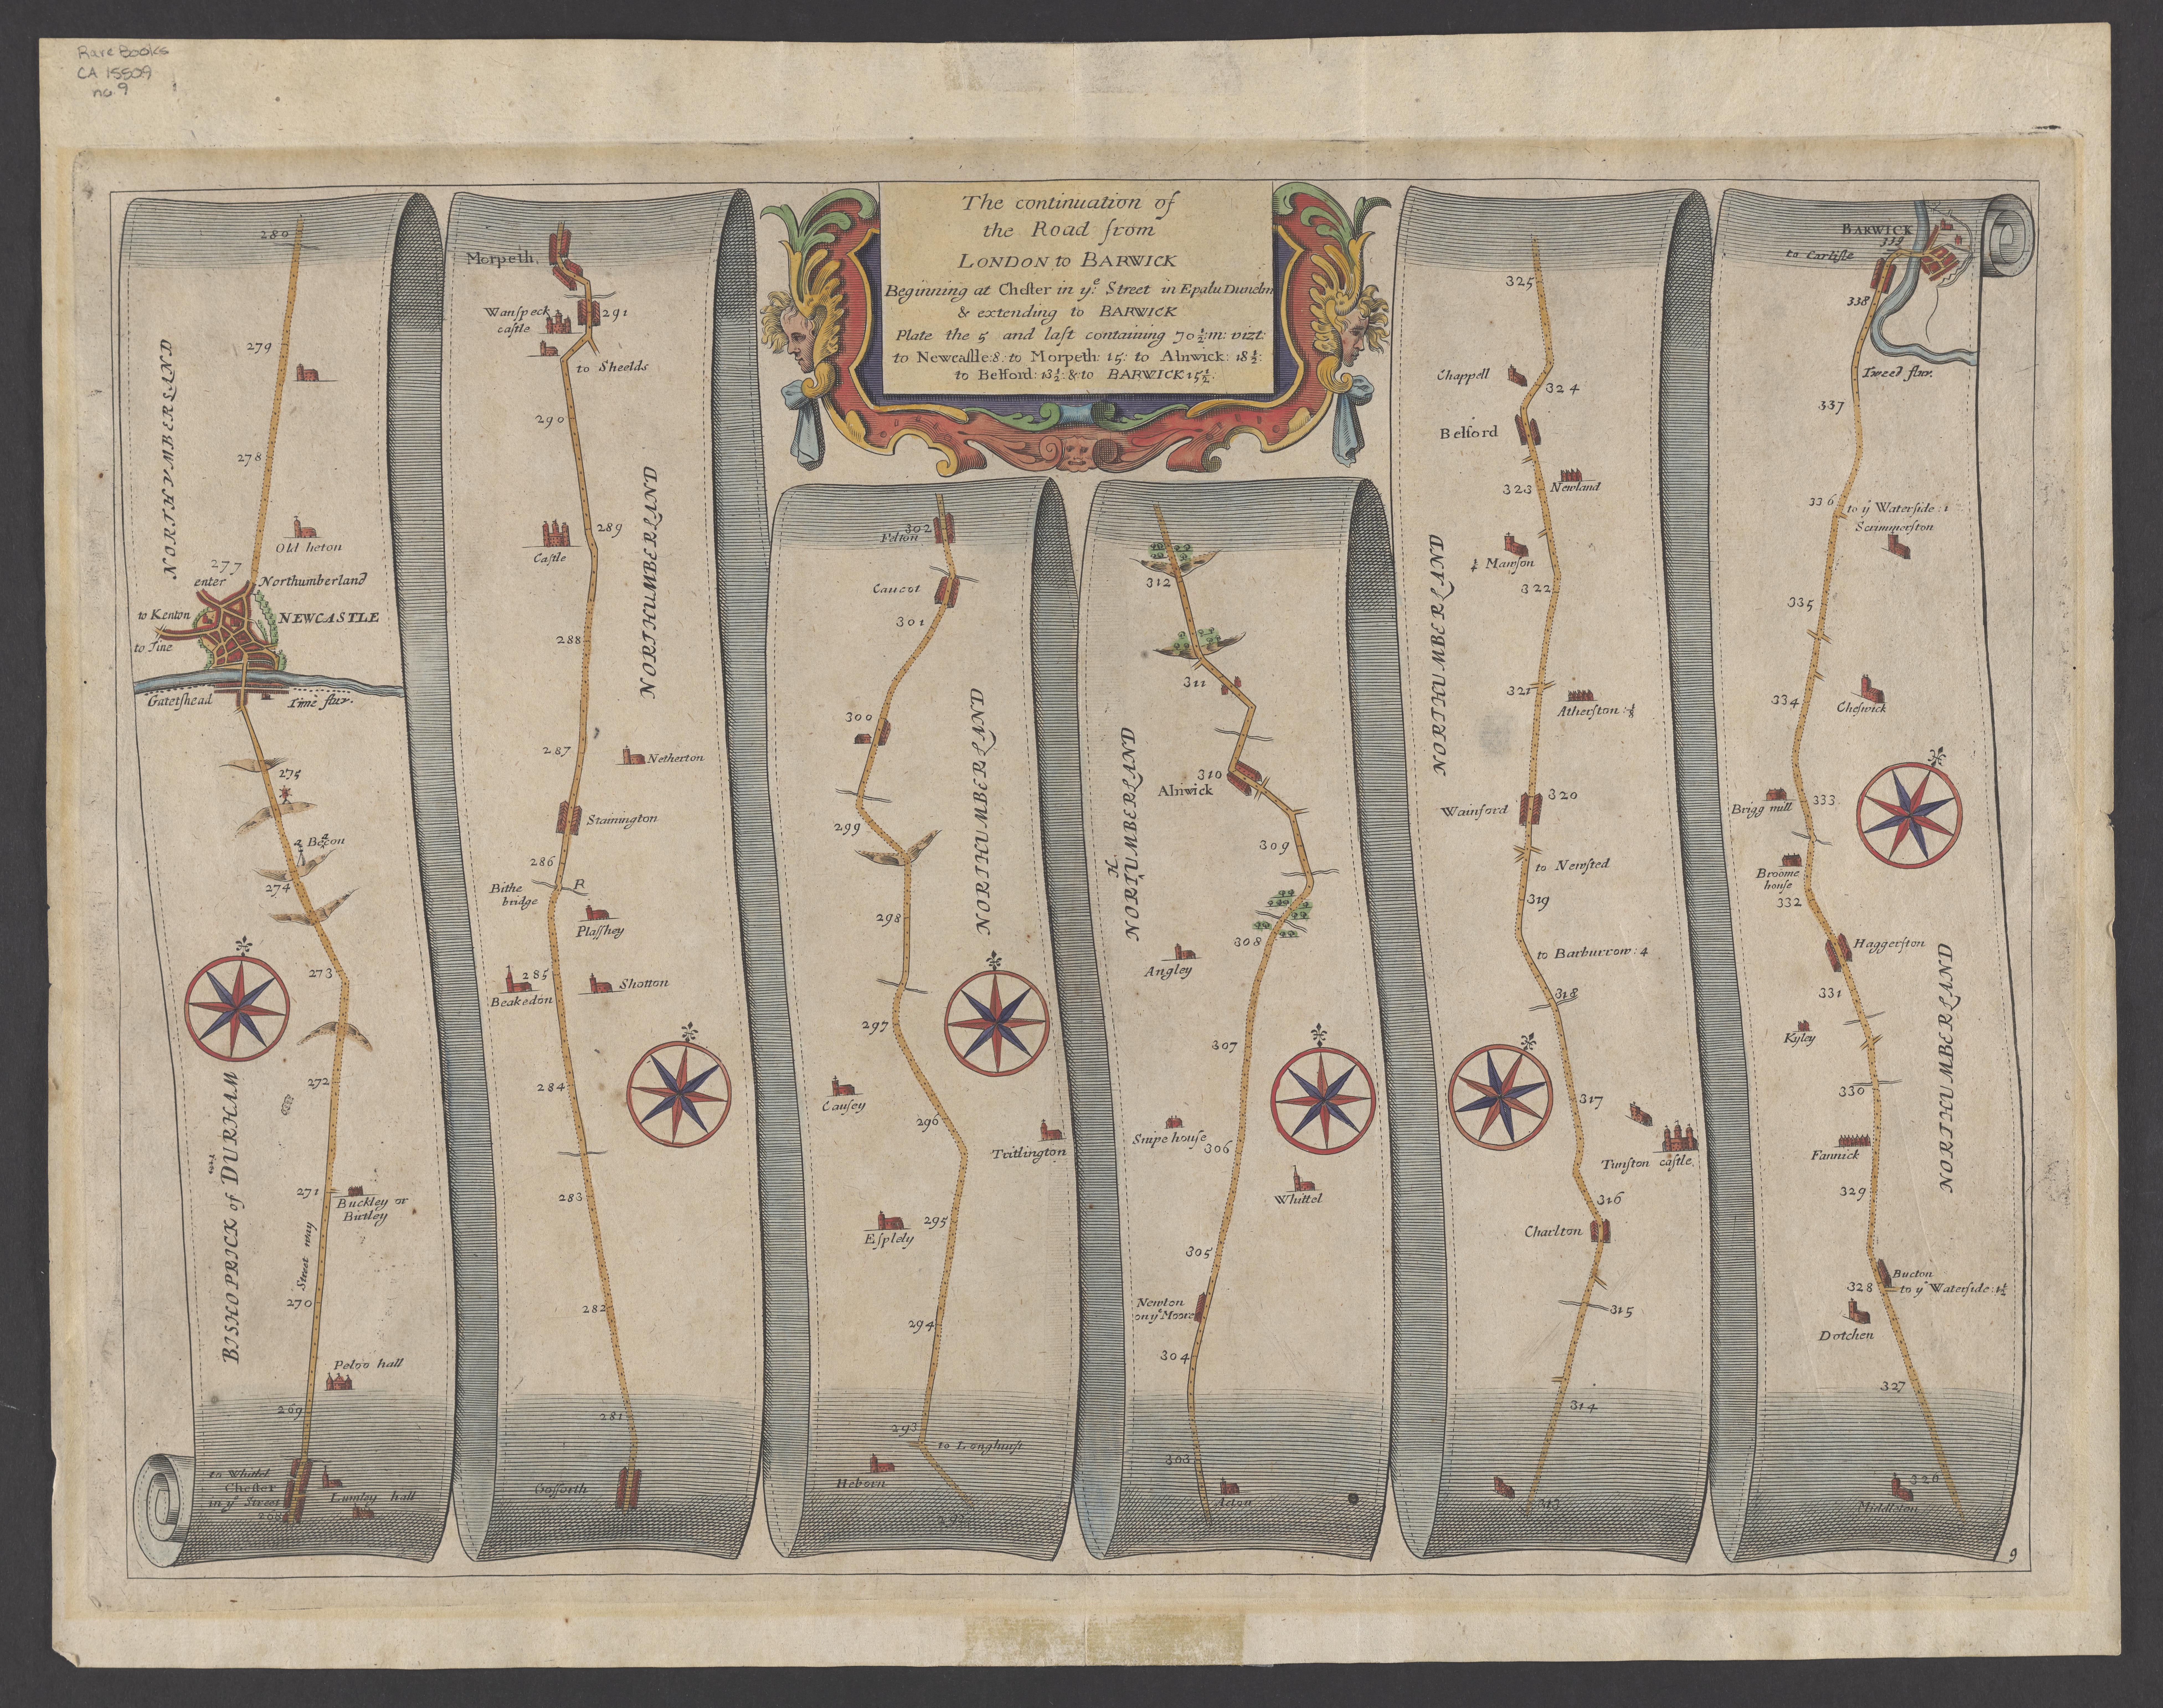 Rare Books
CA 15509
no 9
The continuation of
the Road from
LONDON to BARWICK
Beginning at Chester in yᵉ Street in Epatu Dunelm
& extending to BARWICK
Plate the 5 and last containing 70½:m: vizt:
to Newcastle:8: to Morpeth: 15: to Alnwick: 18½:
to Belford: 13½: & to BARWICK 15½:
280
279
NORTHUMBERLAND
278
Old heton
277
enter Northumberland
to Kenton
NEWCASTLE
to Tine
Gateshead
Tine fluv.
275
a Becon
274
273
272
BISHOPRICK of DURHAM
271
Buckley or
Birtley
Street way
270
Peloo hall
269
to Whittel
Chester
in yᵉ Street
Lumley hall
268
Morpeth
Wanspeck
castle
291
to Sheelds
290
NORTHUMBERLAND
289
Castle
288
287
Netherton
Stanington
286
Bithe
bridge
R
Plasshey
285
Beakedon
Shotton
284
283
282
281
Gosforth
302
Felton
Caucot
301
300
NORTHUMBERLAND
299
298
297
Causey
296
Tritlington
295
Esplely
294
293
to Longhurst
Heborn
292
312
311
310
Alnwick
309
NORTHUMBERLAND
308
Angley
307
Snipe house
306
Whittel
305
Newton
on yᵉ Moore
304
303
Acton
325
Chappell
324
Belford
323
Newland
¼ Mawson
322
NORTHUMBERLAND
321
Atherston:⅛
320
Wainford
to Newsted
319
to Barburrow: 4
318
317
Tunston castle
316
Charlton
315
314
313
BARWICK
339
to Carlisle
338
Tweed fluv.
337
336
to yᵉ Waterside: 1
Scrimmerston
335
334
Cheswick
Brigg mill
333
Broome
house
332
Haggerston
331
Kyley
330
NORTHUMBERLAND
Fannick
329
Bucton
328
to yᵉ Waterside: 1½
Dotchen
327
326
Middleton
9